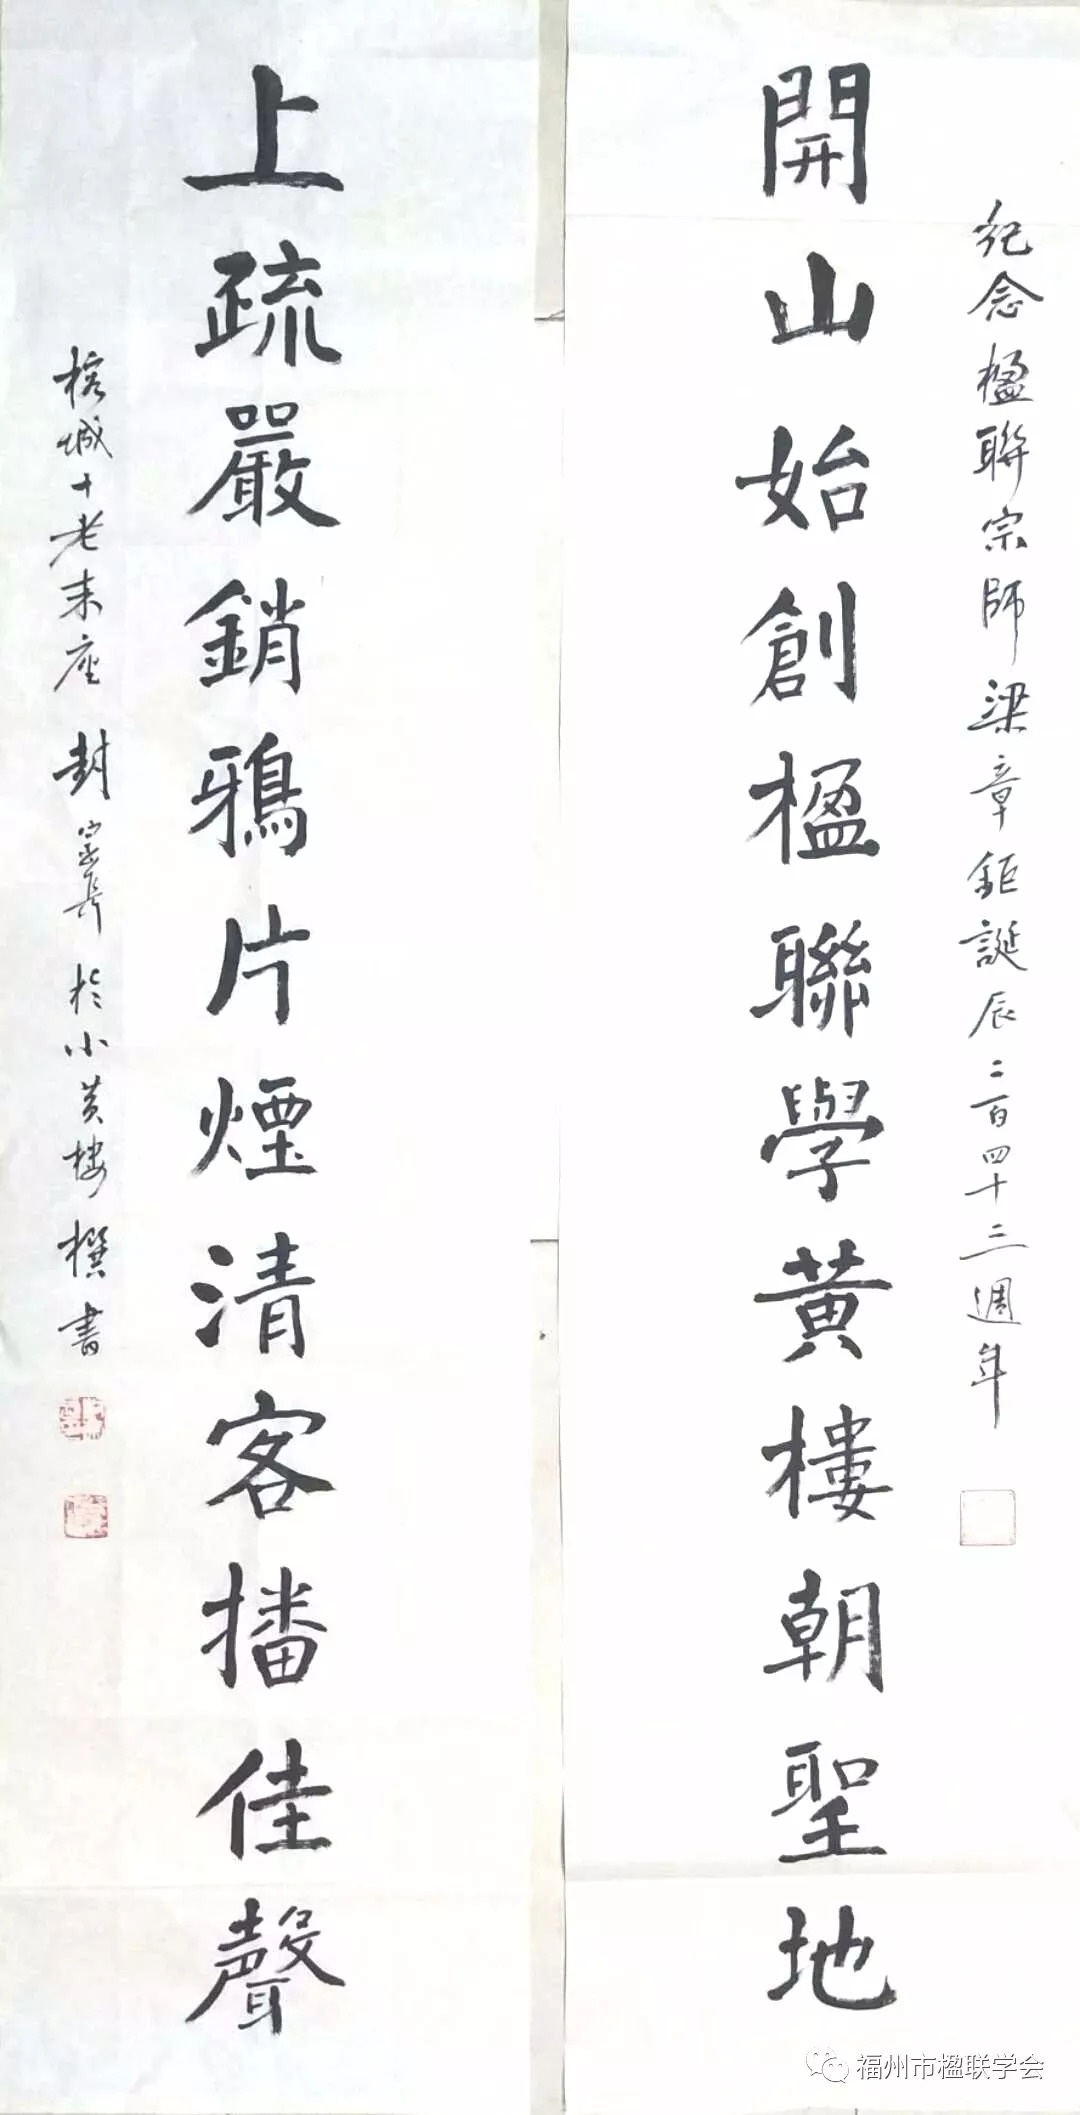 紀念楹聯宗師梁章鉅誕辰二百四十三週年
開山始創楹聯學黃樓朝聖地
上疏嚴銷鴉片煙清客播佳聲
榕城十老末座 封 於小黃樓撰書
福州市楹联学会